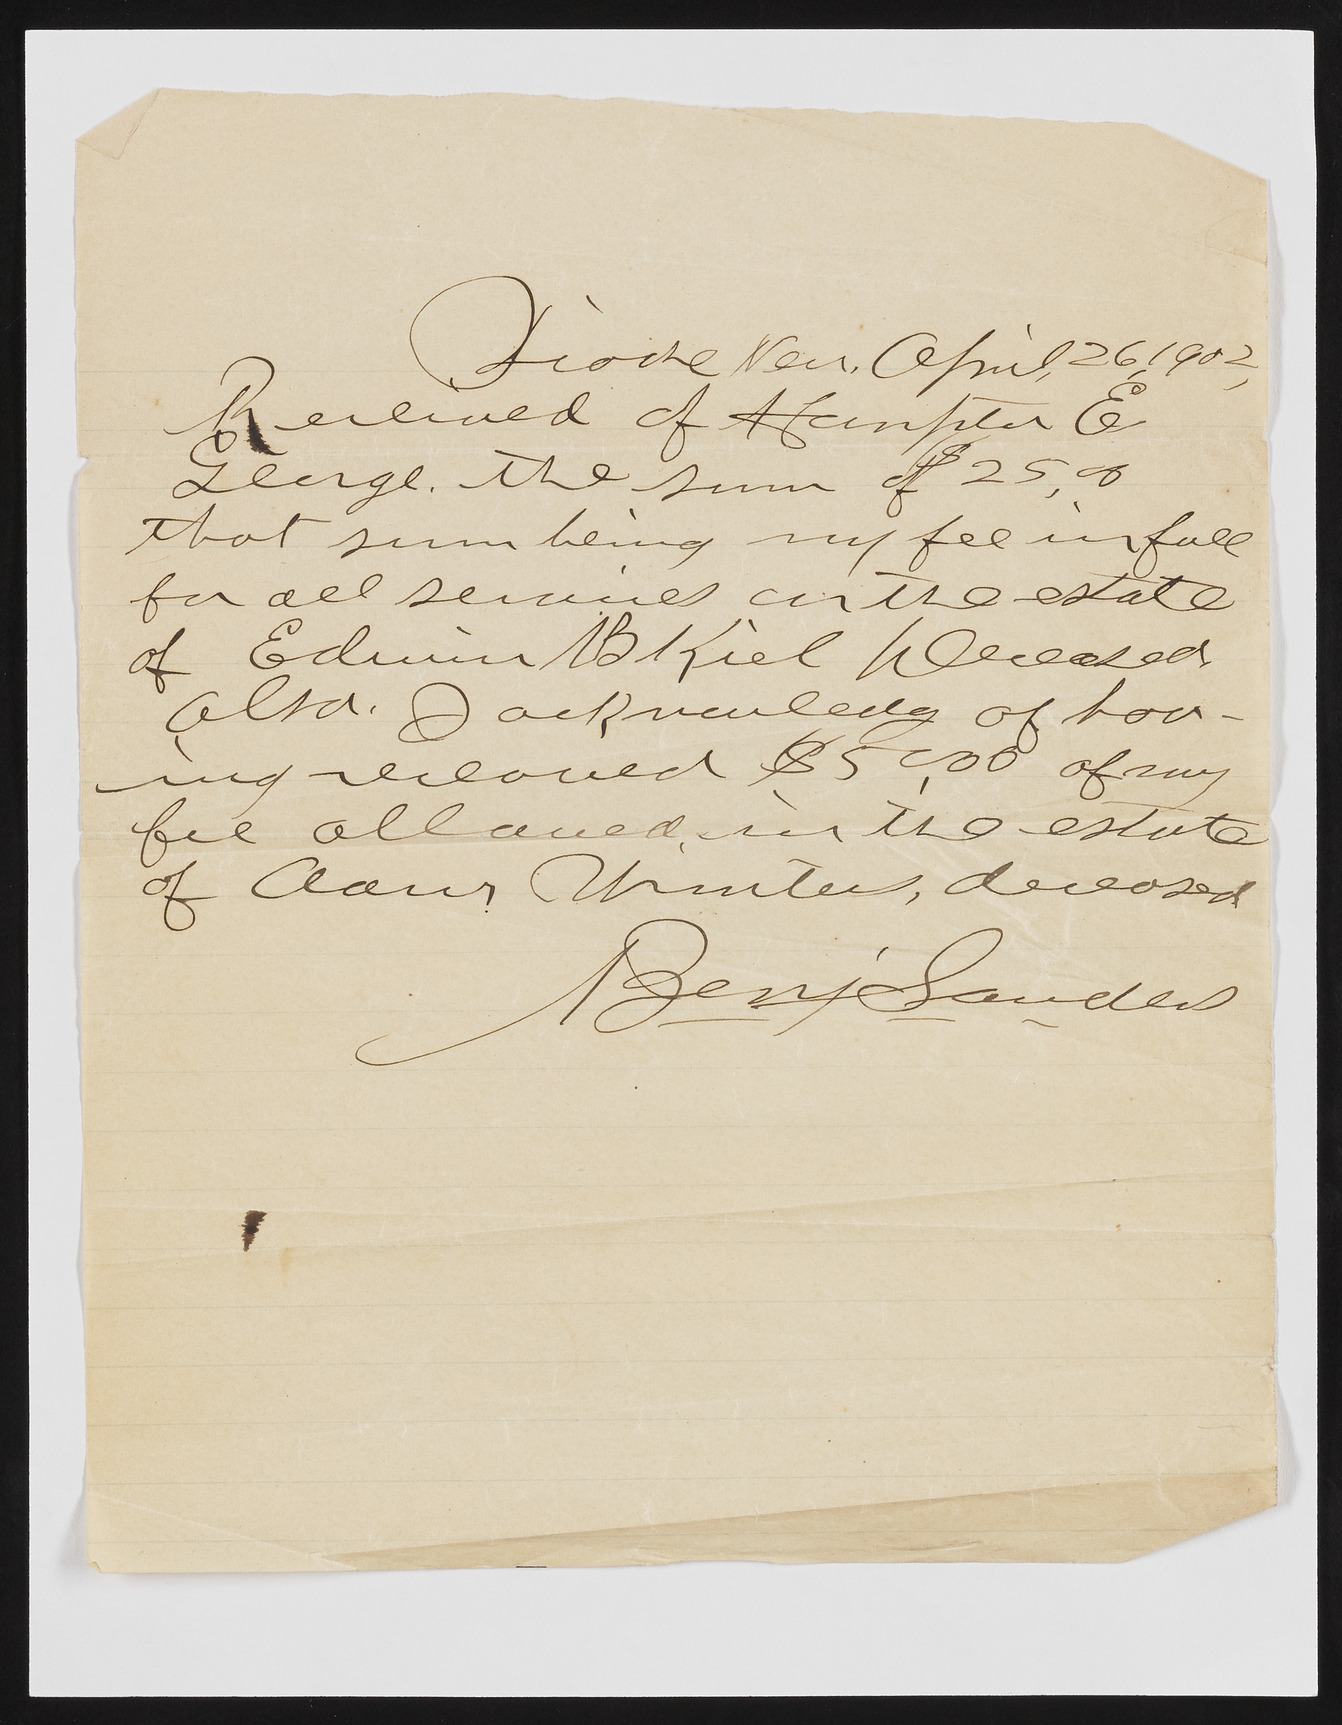 Pioche Nev. April, 26, 1902,
Received of Hampton E
George. the sum of $25,00
that sum being my fee in full
for all services in the estate
of Edwin B Kiel Deceased
also. I acknowledg of hav-
ing received $50,00 of my
fee allowed, in the estate
of Aaron Winters, deceased
Benj Sanders